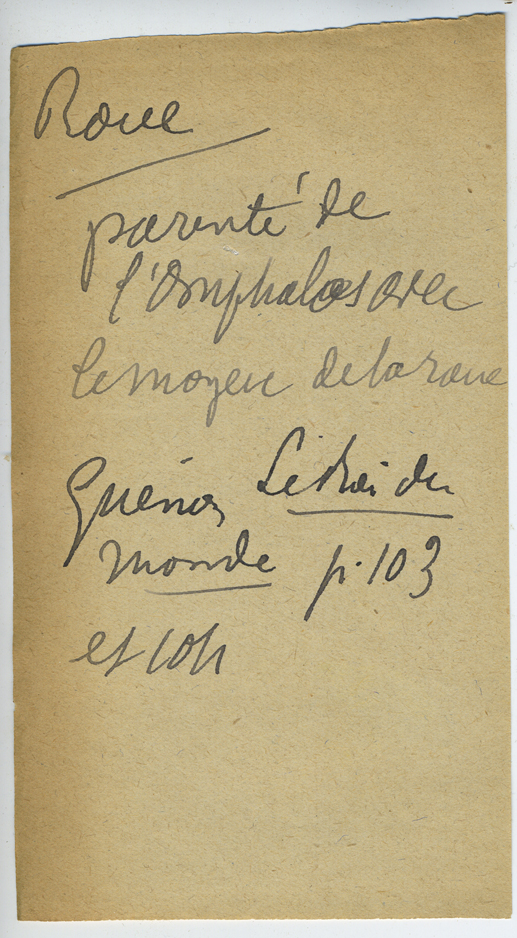 Roue
parenté de
l'Omphalos avec
le moyeu de la roue
Guénon Le Roi du
monde p. 103
et 104